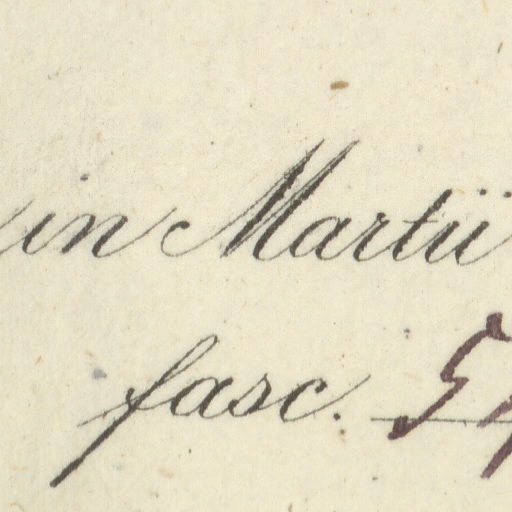 in Martii
fasc. 5